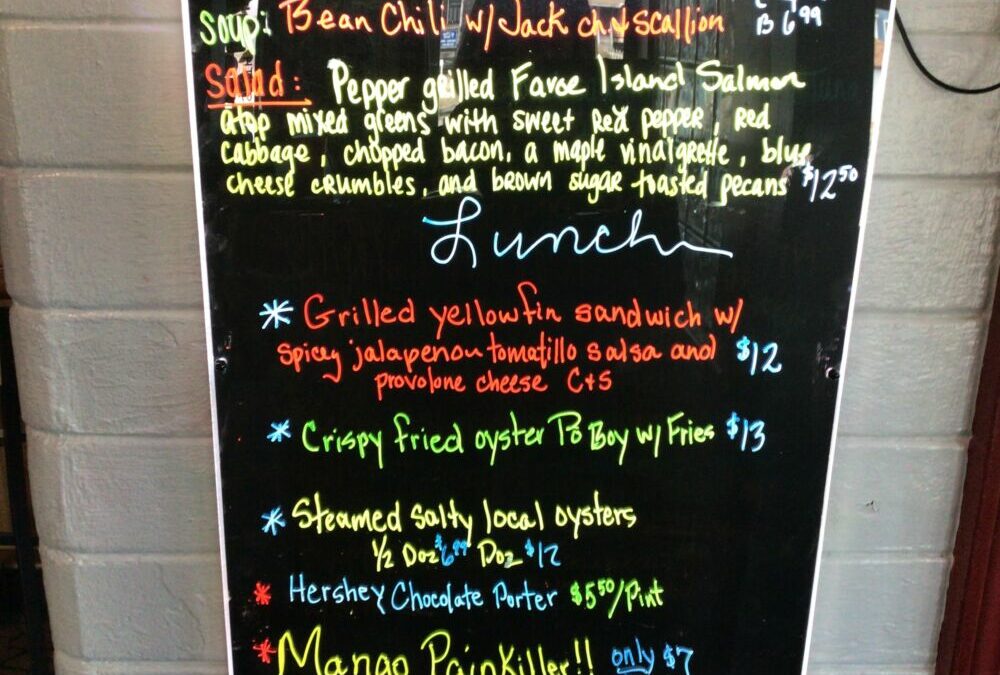 Soup: Bean Chili w/ Jack ch & scallion
B 6.99
Salad: Pepper grilled Faroe Island Salmon
atop mixed greens with sweet Red pepper, red
cabbage, chopped bacon, a maple vinaigrette, blue
cheese crumbles, and brown sugar toasted pecans $12.50
Lunch
* Grilled yellowfin sandwich w/
spicy jalapenou tomatillo salsa and $12
provolone cheese C+S
* Crispy fried oyster Po Boy w/ Fries $13
* Steamed salty local oysters
1/2 Doz $6.99 Doz $12
* Hershey Chocolate Porter $5.50/Pint
* Mango Painkiller!! only $7